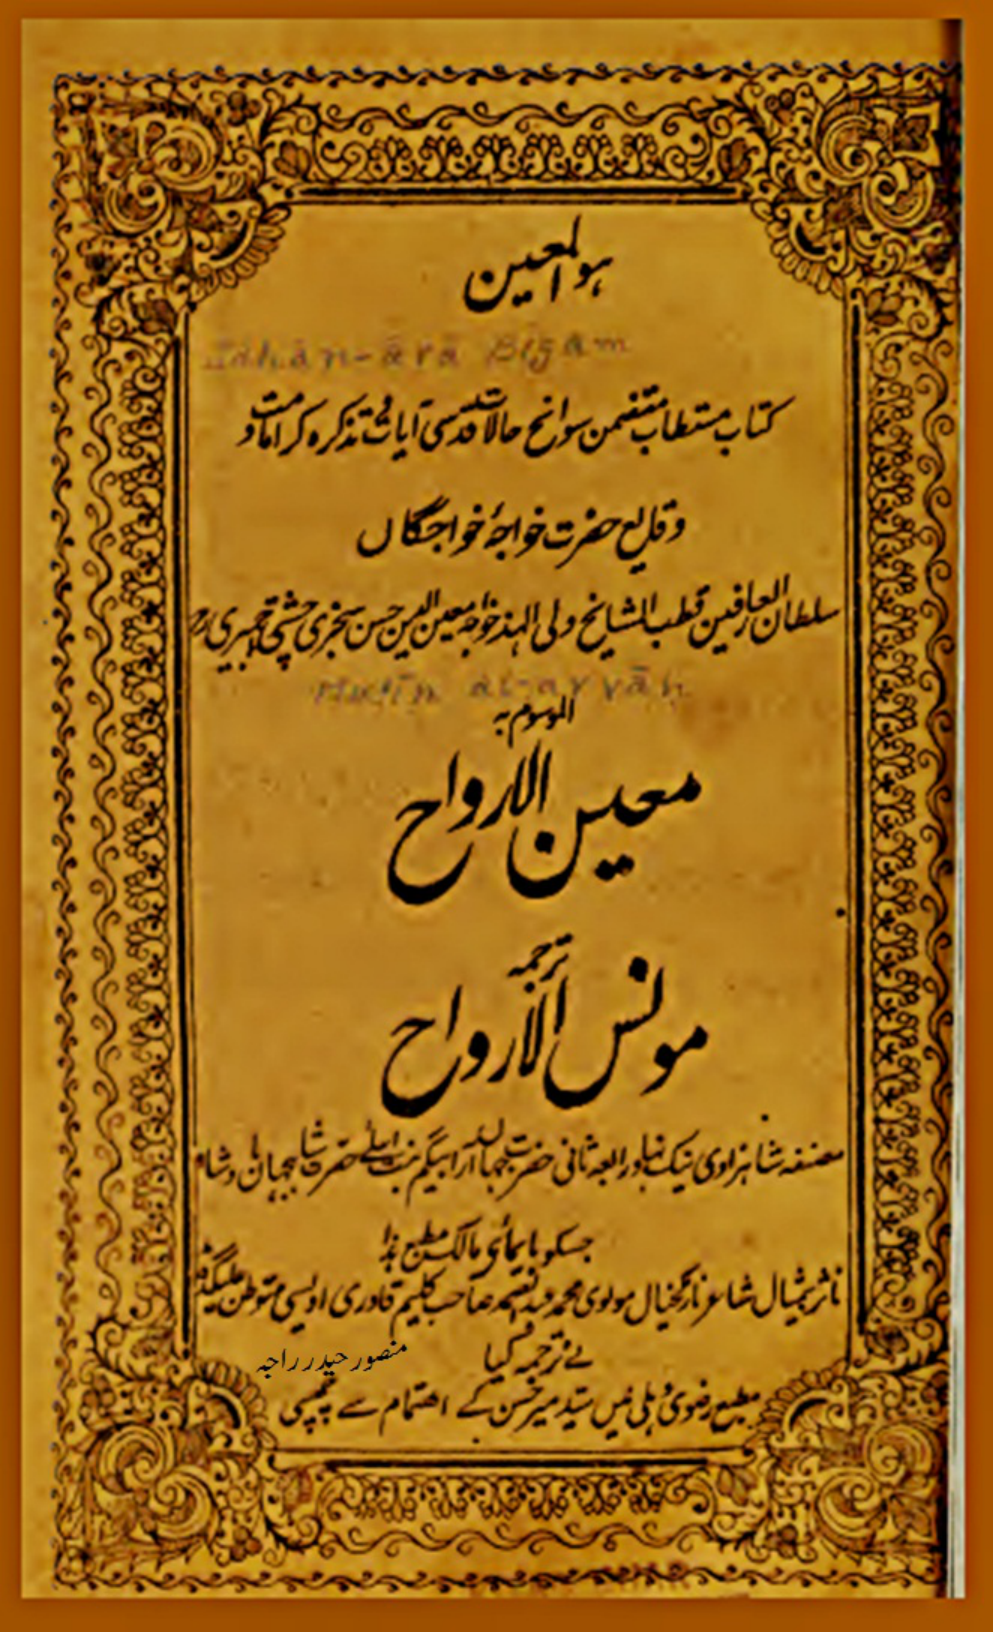 ہوالمعین
Jahān-ārā Bigam
کتاب مستطاب متضمن سوانح حالات قدسی آیات فی تذکرہ کرامات و
وقایع حضرت خواجۂ خواجگاں
سلطان العارفین قطب المشایخ ولی الہند خواجہ معین الدین حسن سنجری چشتی اجمیری رح
Mu'īn al-arvāh
الموسوم بہ
معین الارواح
ترجمہ
مونس الارواح
مصنفہ شاہزادی نیک نہاد رابعہ ثانی حضرت جہاں آرا بیگم بنت حضرت شاہجہاں بادشاہ
جسکو بایمائی مالک مطبع ہذا
ناثر بیمثال شاعر نازکخیال مولوی محمد عبدالصمد صاحب کلیم قادری اویسی متوطن
نے ترجمہ کیا
منصور حیدر راجہ
مطبع رضوی دہلی میں سید میر حسن کے اہتمام سے چھپی